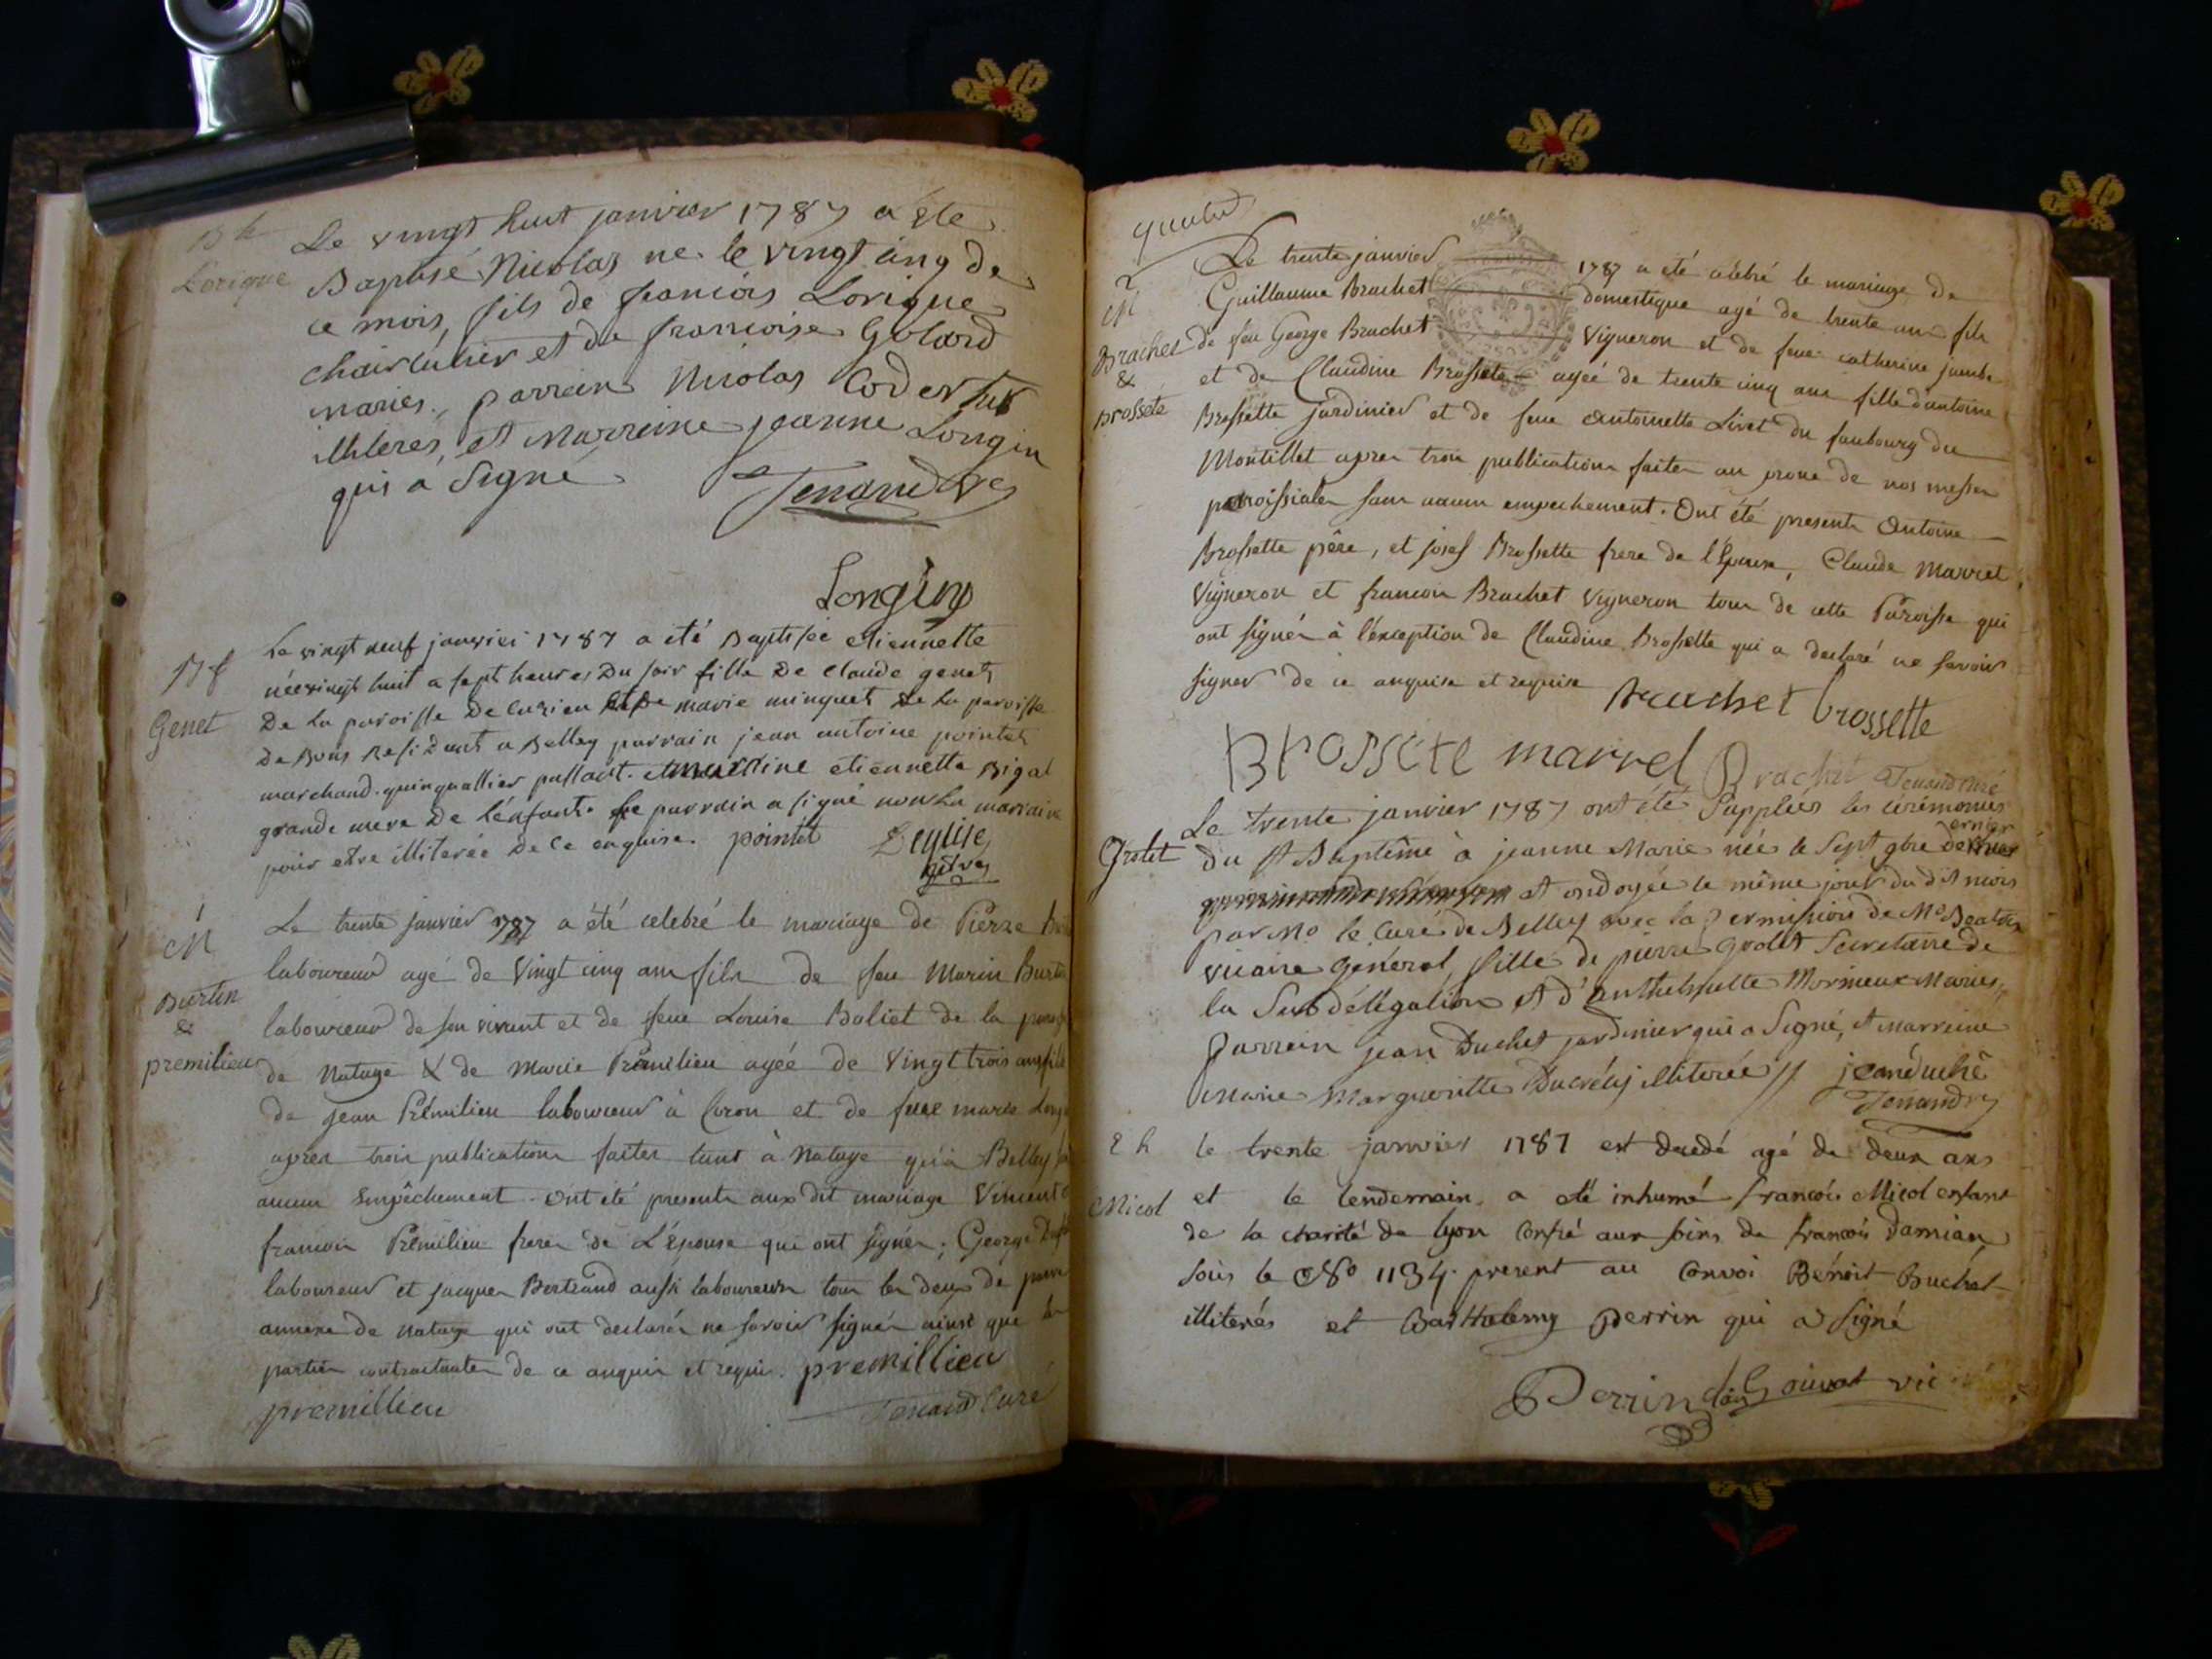 Bh
Lorigue
Le vingt huit janvier 1787 a été
Baptisé Nicolas né le vingt cinq de
ce mois, fils de francois Lorigue
chaircutier et de francoise Golard
mariés, parrein Nicolas
illiterés, et Marreine jeanne Longin
qui a Signé Tenand
Longin
Bf
Genet
Le vingt neuf janvier 1787 a été Baptisée etiennette
née vingt huit a sept heures Du soir fille De Claude genet
De La paroisse De Cuzieu et De marie minguet De La paroisse
De Bons Residant a Belley parrain jean antoine pointet
marchand quinquallier passant. et marraine etiennette Bigal
grande mere De l'enfant. Le parrain a signé non La marraine
pour etre illiterée De Ce enquise. pointet Deguise
M
Burtin
&
premilieu
Le trente janvier 1787 a été celebré le mariage de Pierre
laboureur agé de vingt cinq ans fils de feu Marin Burtin
laboureur de son vivant et de feue Louise Baliet de la
de Natage & de Marie Prémilieu agée de vingt trois ans fille
de jean Prémilieu laboureur à Coron et de feue marie
apres trois publications faites tant à Natage qu'à Belley
aucun empêchement. Ont été presents aux dit mariage Vincent
francois Prémilieu freres de L'épouse qui ont signés; George
laboureur et jacques Bertrand aussi laboureurs tous les deux de
annexe de Natage qui ont declarés ne savoir signer ainsi que les
parties contractantes de ce enquis et requis. premillieu
premillieu Tenand Curé
2
M
Brachet
&
Brosséte
Le trente janvier 1787 a été célébré le mariage de
Guillaume Brachet domestique agé de trente ans fils
de feu George Brachet Vigneron et de feue catherine jambe
et de Claudine Brossete agée de trente cinq ans fille d'antoine
Brossette jardinier et de feue Antoinette Livet du faubourg du
Montillet apres trois publications faites au prone de nos messes
paroissiales sans aucun empechement. Ont été presents Antoine
Brossette père, et josef Brossette frere de l'Epouse, Claude Marret,
Vigneron et francois Brachet Vigneron tous de cette Paroisse qui
ont signés à l'éxception de Claudine Brossette qui a declaré ne savoir
signer de ce enquise et requise Brachet brossette
Brossete marrel Brachet Tenand curé
Grolet
Le trente janvier 1787 ont été Supplées les cérémonies
du St Baptême à jeanne Marie née le Sept 9bre dernier
et ondoyée le même jour du dit mois
par Mr le Curé de Belley avec la permission de Mr
vicaire général, fille de pierre Grolet Secretaire de
la Subdélégation et d'Anthelmette Mornieux Mariés,
Parrein jean Duchet jardinier qui a Signé, et Marreine
Marie Margueritte illiterée // jean duchê
Tenand
Eh
Nicol
le trente janvier 1787 est decedé agé de deux ans
et le lendemain a été inhumé francois Nicol enfant
de la charité de lyon Confié aux soins de francois Damian
sous le No 1134. present au Convoi Bénoit Buchet
illiterés et Barthelemy perrin qui a signé
Perrin Goinat vic